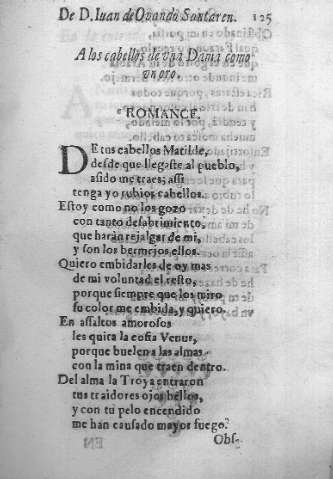 De D. Iuan de Ouando Santaren. 125
A los cabellos de vna Dama como
vn oro.
ROMANCE.
DE tus cabellos Matilde,
desde que llegaste al pueblo,
asido me traes; assi
tenga yo rubios cabellos.
Estoy como no los gozo
con tanto desabrimiento,
que haràn rejalgar de mi,
y son los bermejos ellos.
Quiero embidarles de oy mas
de mi voluntad el resto,
porque siempre que los miro
su color me embida, y quiero.
En assaltos amorosos
les quita la cofia Venus,
porque buelen a las almas
con la mina que traen dentro.
Del alma la Troya entraron
tus traidores ojos bellos,
y con tu pelo encendido
me han causado mayor fuego.
Obs-